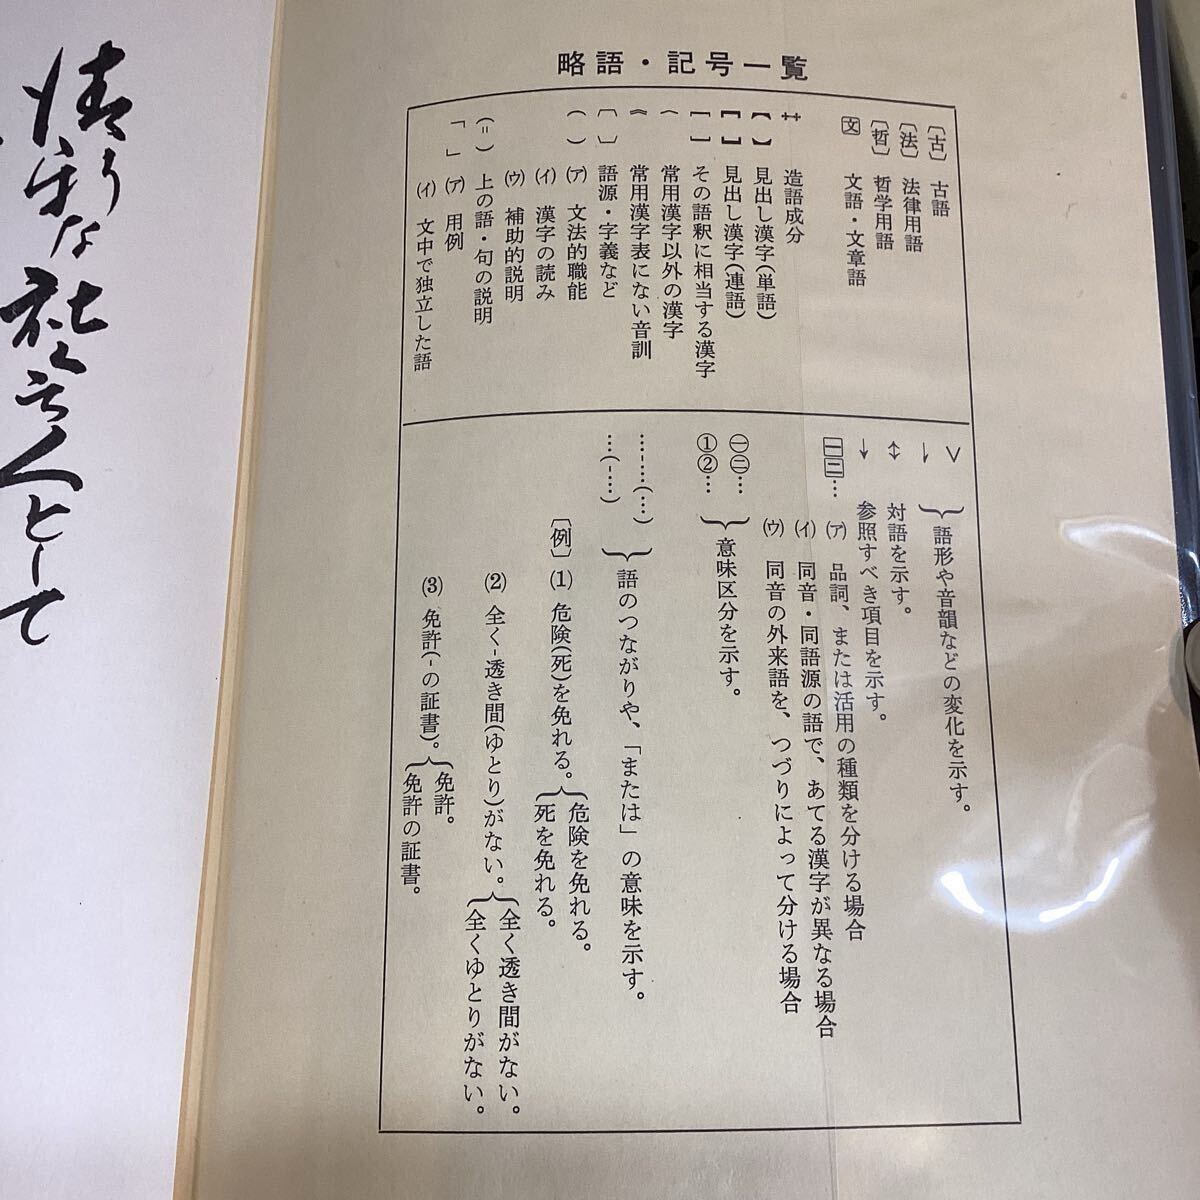 略語・記号一覧
〔古〕 古語
〔法〕 法律用語
〔哲〕 哲学用語
文 文語・文章語
造語成分
【 】 見出し漢字(単語)
見出し漢字(連語)
[ ] その語釈に相当する漢字
常用漢字以外の漢字
常用漢字表にない音訓
〔 〕 語源・字義など
( ) (ア) 文法的職能
(イ) 漢字の読み
(ウ) 補助的説明
(=) 上の語・句の説明
「 」 (ア) 用例
(イ) 文中で独立した語
語形や音韻などの変化を示す。
↔ 対語を示す。
→ 参照すべき項目を示す。
一 二 … (ア) 品詞、または活用の種類を分ける場合
(イ) 同音・同語源の語で、あてる漢字が異なる場合
(ウ) 同音の外来語を、つづりによって分ける場合
㊀㊁…
①②…
意味区分を示す。
…-…(…)
…(-…)
語のつながりや、「または」の意味を示す。
〔例〕 (1) 危険(死)を免れる。
危険を免れる。
死を免れる。
(2) 全く-透き間(ゆとり)がない。
全く透き間がない。
全くゆとりがない。
(3) 免許(-の証書)。
免許。
免許の証書。
清新な社会人として